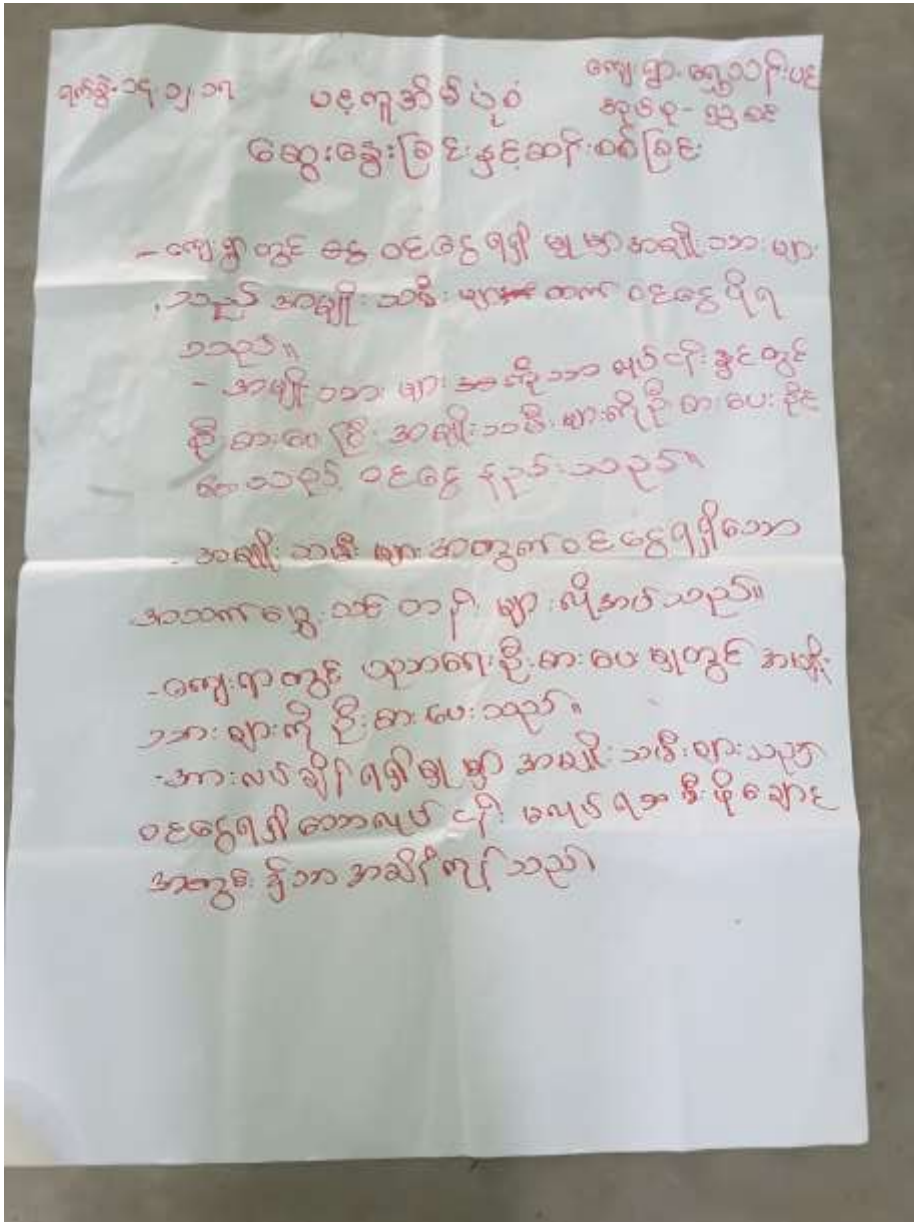 ရက်စွဲ-၁၄.၁၂.၁၇
ကျေးရွာ-ရွှေသင်းပင်
ပင့်ကူအိမ်ပုံစံ
အုပ်စု-
ဆွေးနွေးခြင်းနှင့်ဆန်းစစ်ခြင်း
-ကျေးရွာတွင် ငွေ ဝင်ငွေရရှိမှုမှာအမျိုးသားများ
သည် အမျိုးသမီးများထက် ဝင်ငွေပိုရ
သည်။
-အမျိုးသားများအလိုသာ လုပ်ငန်းခွင်တွင်
ဦးစားပေးပြီး အမျိုးသမီးများကိုဦးစားပေးနိုင်
သည့် ဝင်ငွေနည်းသည်။
-အမျိုးသမီးများအတွက်ဝင်ငွေရရှိသော
အသက်မွေးသင်တန်းများလိုအပ်သည်။
-ကျေးရွာတွင် ပညာရေးဦးစားပေးမှုတွင် အမျိုး
သားများကိုဦးစားပေးသည်။
-အားလပ်ချိန်ရရှိမှုမှာ အမျိုးသမီးများသည်
ဝင်ငွေရရှိသောလုပ်ငန်းမလုပ်ရ မီးဖိုချောင်
အတွင်း၌သာအချိန်ကုန်သည်။